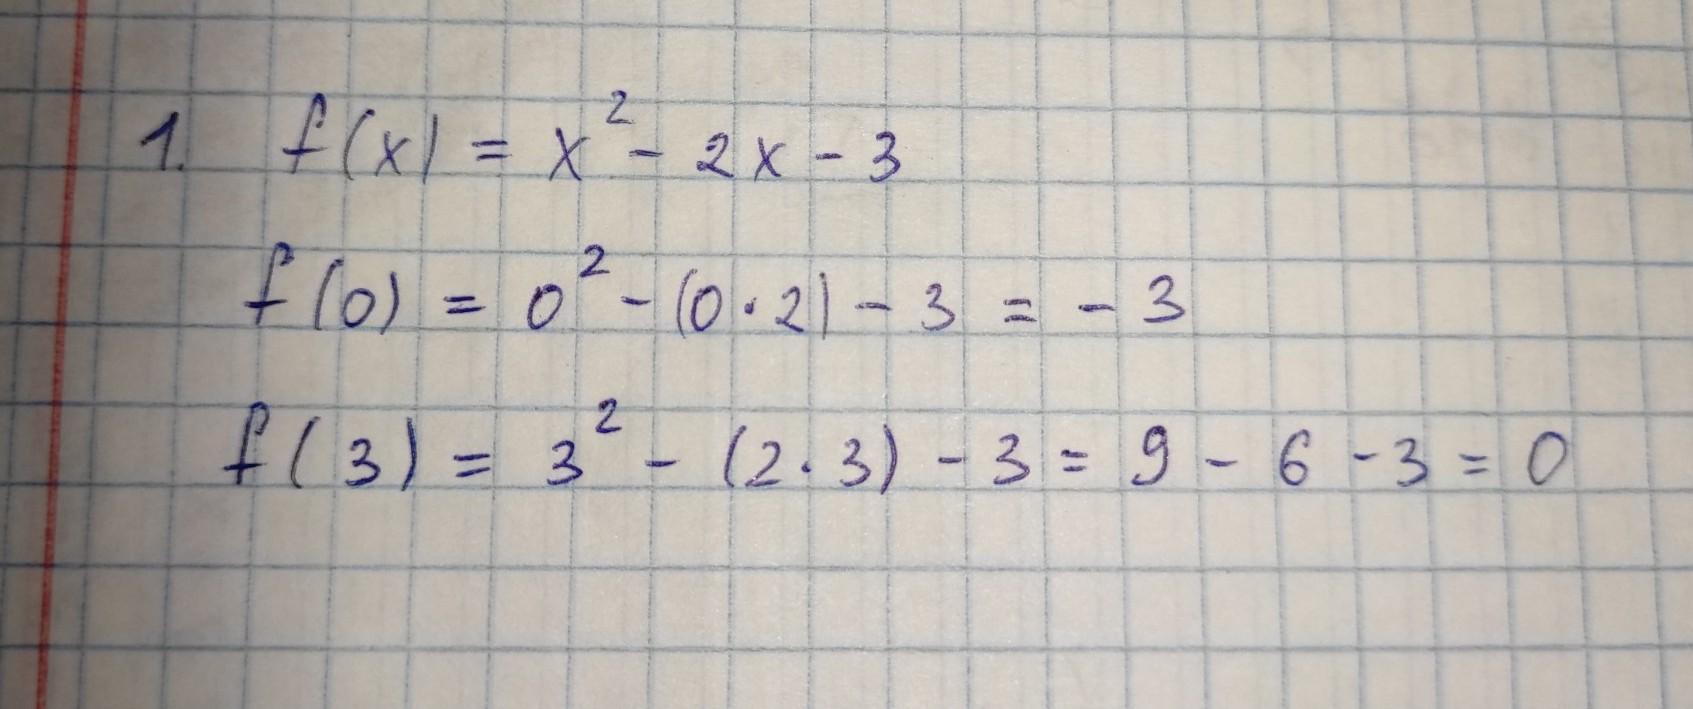 1. f(x) = x² - 2x - 3
f(0) = 0² - (0·2) - 3 = - 3
f(3) = 3² - (2·3) - 3 = 9 - 6 - 3 = 0